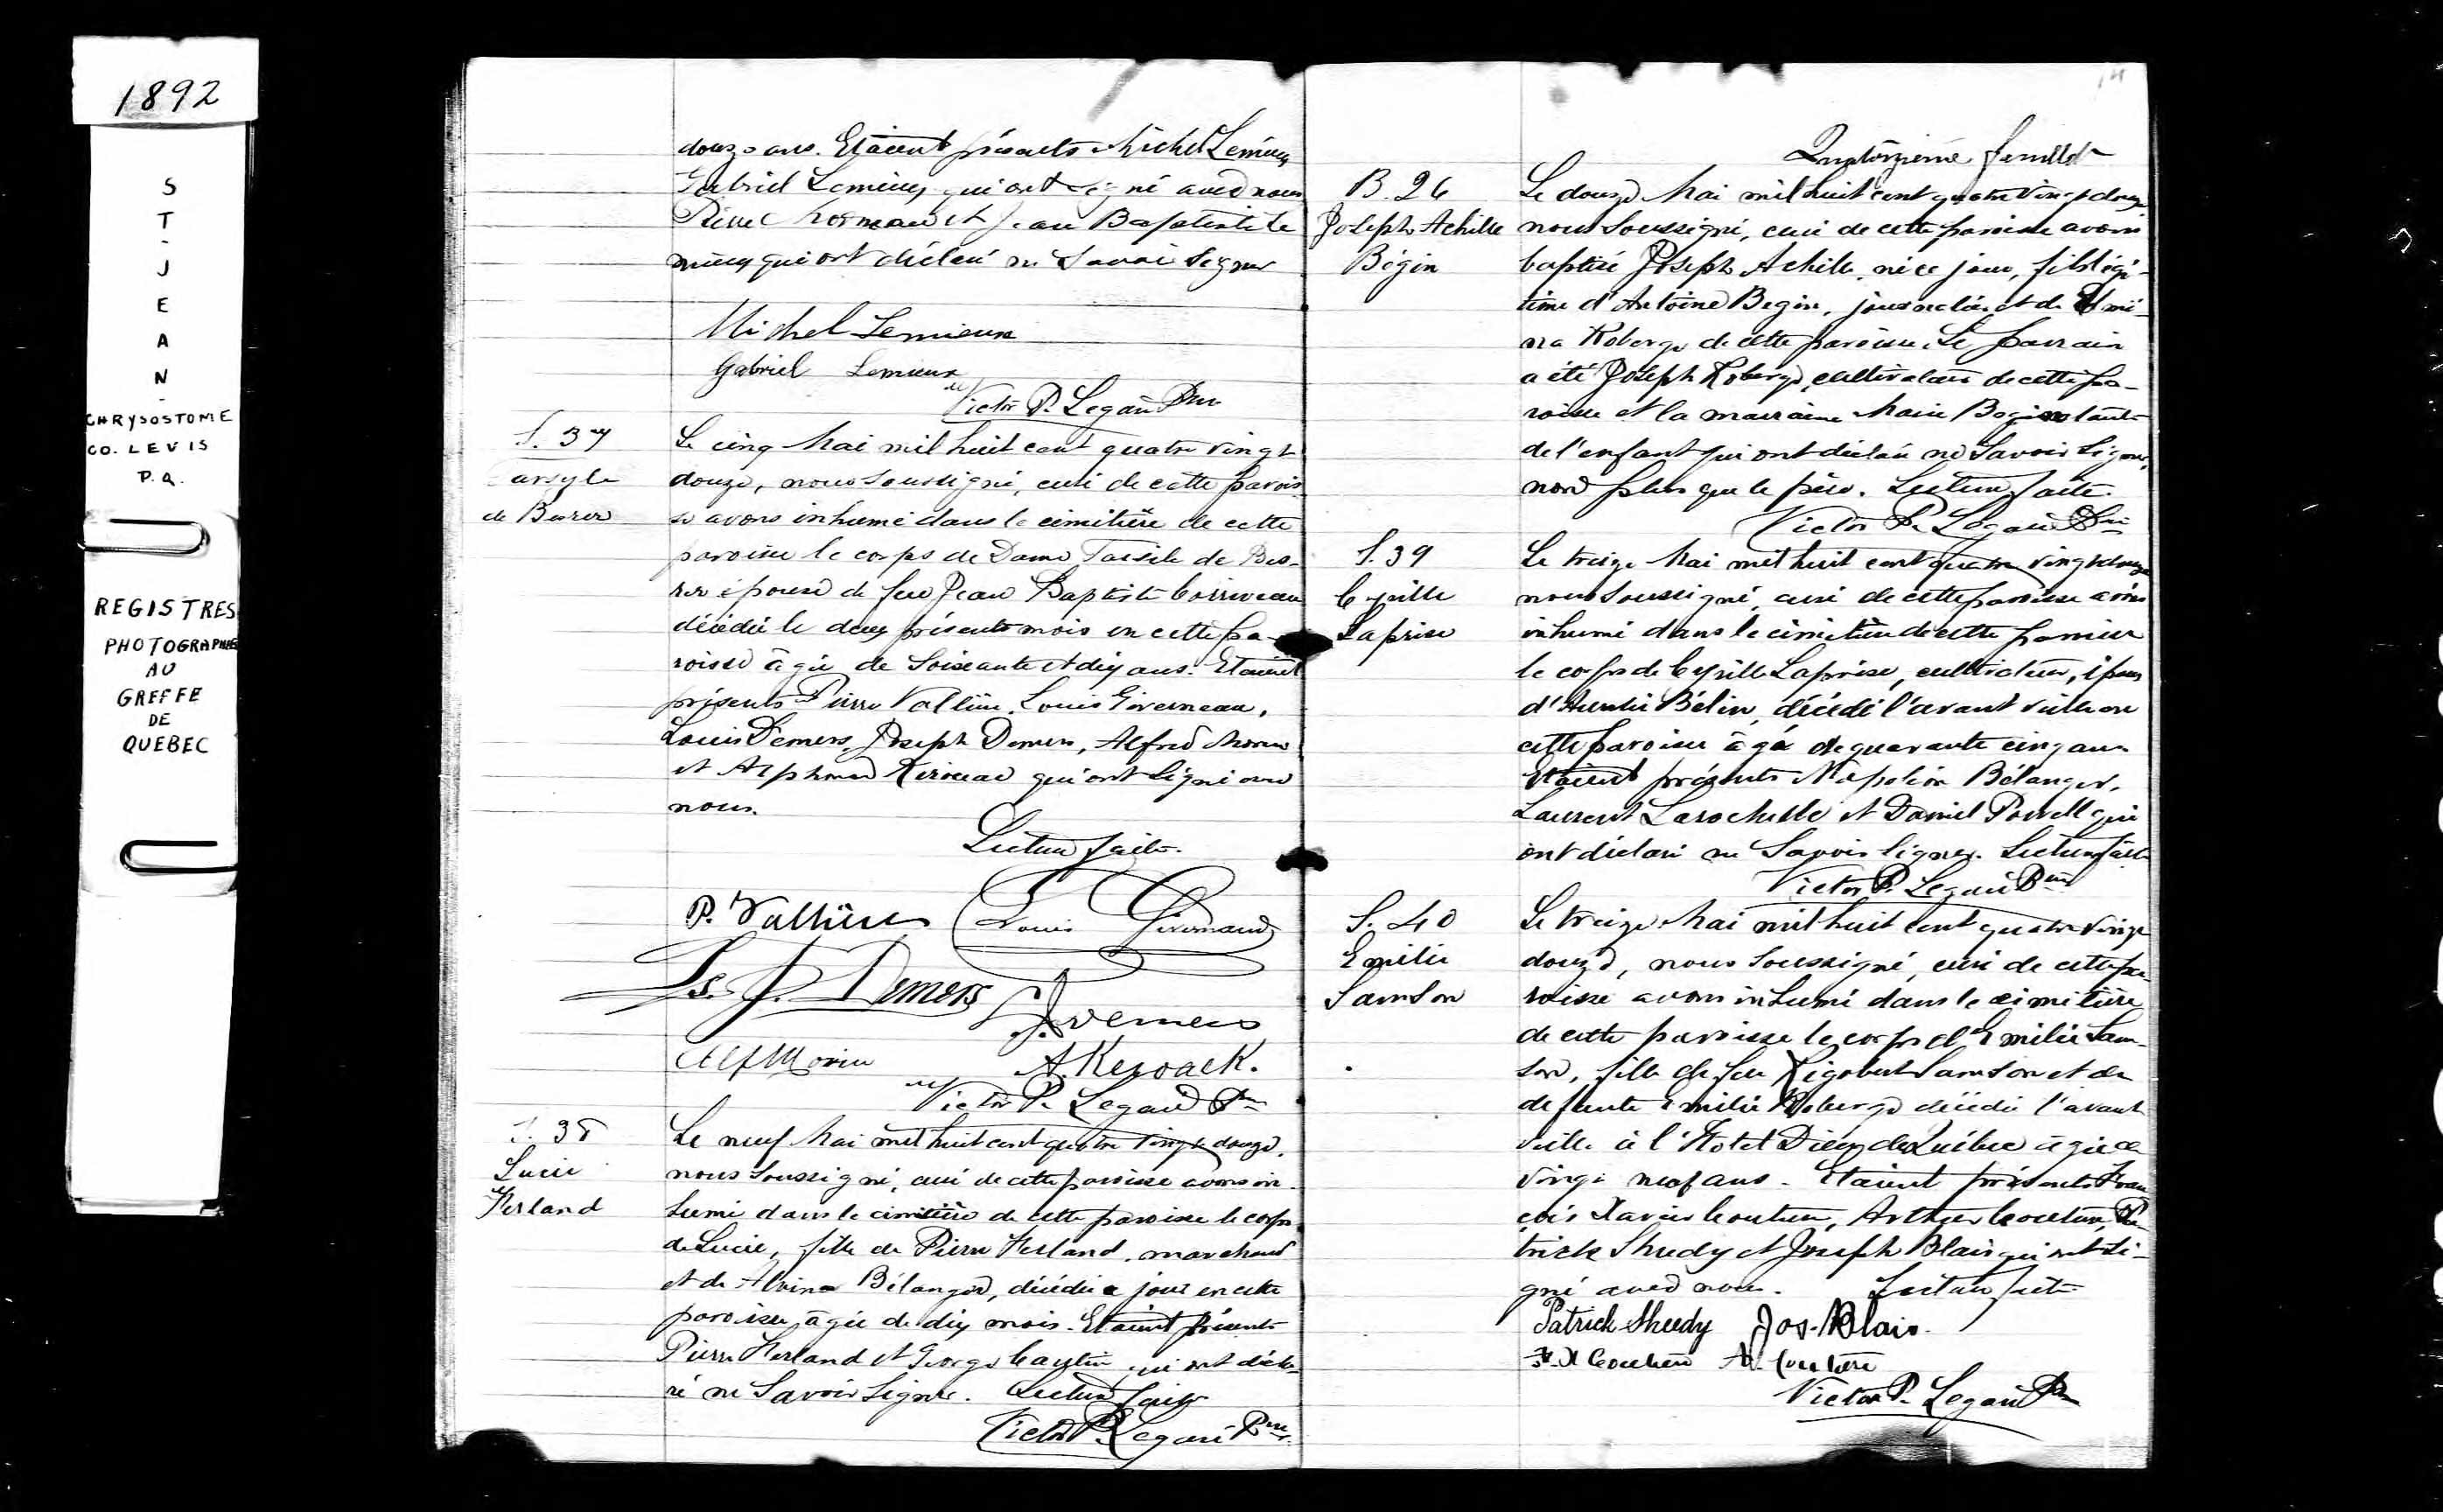 1892
S
T
-
J
E
A
N
-
CHRYSOSTOME
CO. LEVIS
P.Q.
REGISTRES
PHOTOGRAPHIES
AU
GREFFE
DE
QUEBEC
douze ans. Etaient présents Michel Lemieux
Gabriel Lemieux qui ont signé avec nous
Pierre et Jean Baptiste Le
mieux qui ont déclaré ne savoir signer
Michel Lemieux
Gabriel Lemieux
Victor P. Legaré Ptre
S. 37
arsyle
de Beser
Le cinq Mai mil huit cent quatre vingt
douze, nous soussigné, curé de cette parois
se avons inhumé dans le cimitière de cette
paroisse le corps de Dame Tarsile de
épouse de feu Jean Baptiste Corriveau
décédée le deux présent mois en cette pa-
roisse âgée de soixante et dix ans. Etaient
présents Pierre Vallière, Louis
Louis Demers, Joseph Demers, Alfred Morin
et Alphonse Kerouac qui ont signé avec
nous.
Lecture faite.
P. Vallière Louis
Ls. J. Demers J Demers
Alf Morin A. Keroack.
Victor P. Legaré Ptre
S. 38
Lucie
Ferland
Le neuf Mai mil huit cent quatre vingt douze,
nous soussigné, curé de cette paroisse avons in
humé dans le cimitière de cette paroisse le corps
de Lucie, fille de Pierre Ferland, marchand
et de Alvina Bélanger, décédée ce jour en cette
paroisse, âgée de dix mois. Etaient présents
Pierre Ferland et George qui ont décla-
ré ne savoir signer. Lecture faite
Victor P. Legaré Ptre
14
Quatorzième feuillet
B. 26
Joseph Achille
Bégin
Le douze Mai mil huit cent quatre vingt douze
nous soussigné, curé de cette paroisse avons
baptisé Joseph Achille, né ce jour, fils légi-
time d'Antoine Begin, journalier et de
na Roberge de cette paroisse. Le parrain
a été Joseph Roberge, cultivateur de cette pa-
roisse et la marraine Marie Begin tante
de l'enfant qui ont déclaré ne savoir signer,
non plus que le père. Lecture faite.
Victor P. Legaré Ptre
S. 39
Cyrille
Laprise
Le treize Mai mil huit cent quatre vingt douze
nous soussigné, curé de cette paroisse avons
inhumé dans le cimitière de cette paroisse
le corps de Cyrille Laprise, cultivateur, époux
d'Aurélie Bélin, décédé l'avant veille en
cette paroisse âgé de quarante cinq ans
Etaient présents Napoléon Bélanger,
Laurent Larochelle et Daniel Powell qui
ont déclaré ne savoir signer. Lecture faite
Victor P. Legaré Ptre
S. 40
Emilie
Samson
Le treize Mai mil huit cent quatre vingt
douze, nous soussigné, curé de cette pa-
roisse avons inhumé dans le cimitière
de cette paroisse le corps d'Emilie Sam-
son, fille de feu Rigobert Samson et de
defunte Emilie Roberge décédée l'avant
veille à l'Hotel Dieu de Québec âgée de
vingt neuf ans. Etaient présents Fran
çois Xavier Couture, Arthur Couture, Pa-
trick Sheedy et Joseph Blais qui ont si-
gné avec nous. Lecture faite
Patrick Sheedy Jos. Blais.
F. X Couture A. Couture
Victor P. Legaré Ptre